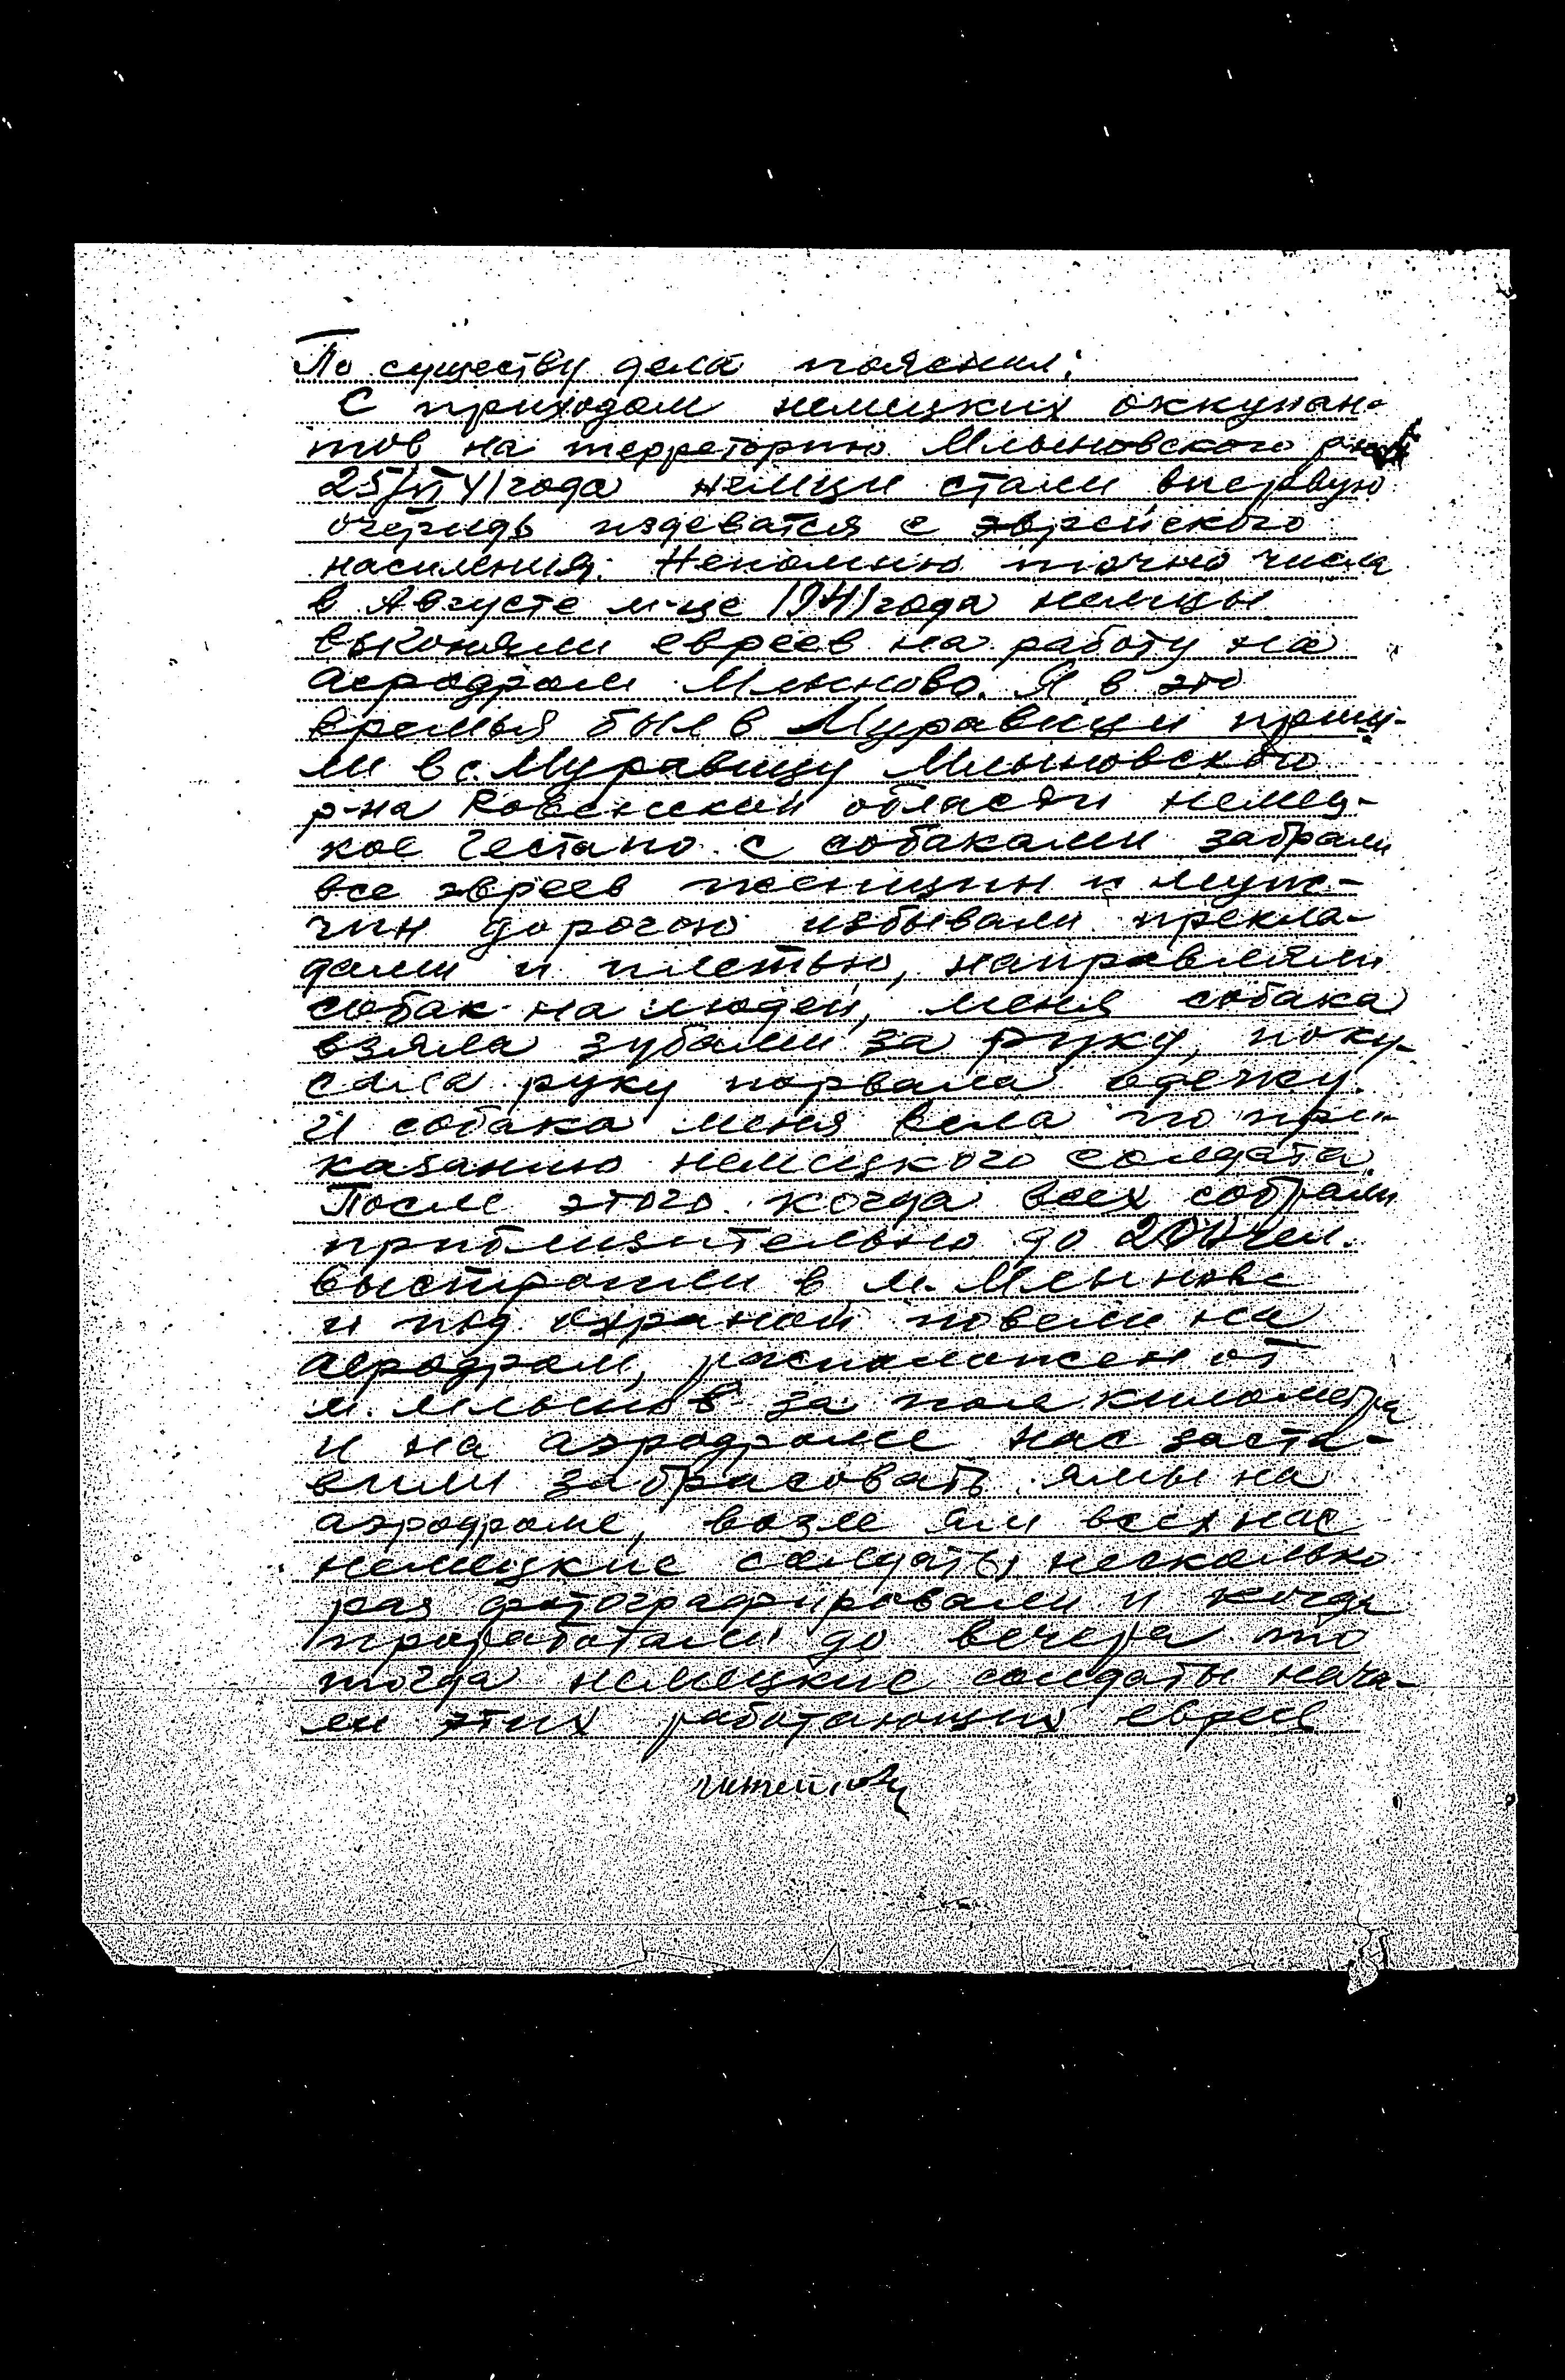 По существу дела пояснил:
С приходом немецких оккупан-
тов на терреторию Млыновского р-на
25/VI 41 года немци стали впервую
очередь издеватся с эврейского
населения. Непомню точно числа
в Августе м-це 1941 года немцы
выгоняли евреев на работу на
аеродром Млыново. Я в это
времья был в Муравици приш-
ли в с. Муравицу Млыновского
р-на Ровенской области немец-
кое Гестапо с собаками забрали
все эвреев женщин и муж-
чин дорогою избывали прекла-
дами и плетью, направляли
собак на людей, меня собака
взяла зубами за руку, поку-
сала руку порвала одежу.
И собака меня вела по при-
казанию немецкого солдата.
После этого когда всех собрали
приблизительно до 200 чел.
выстроили в м. Млынове
и под охраной повели на
аеродром, расположен от
м. Млынов за пол километра
и на аэродроме нас заста-
вили забрасовать ямы на
аэродроме, возле ям всех нас
немецкие солдаты несколько
раз фотографировали и когда
проработали до вечера то
тогда немецкие солдаты нача-
ли этих работающих евреев